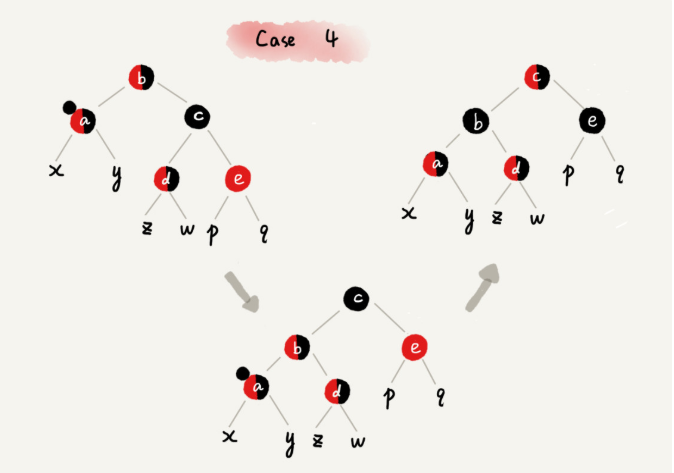 Case 4
b
a c
x y d e
z w p q
c
b e
a d p q
x y z w
c
b e
a d p q
x y z w